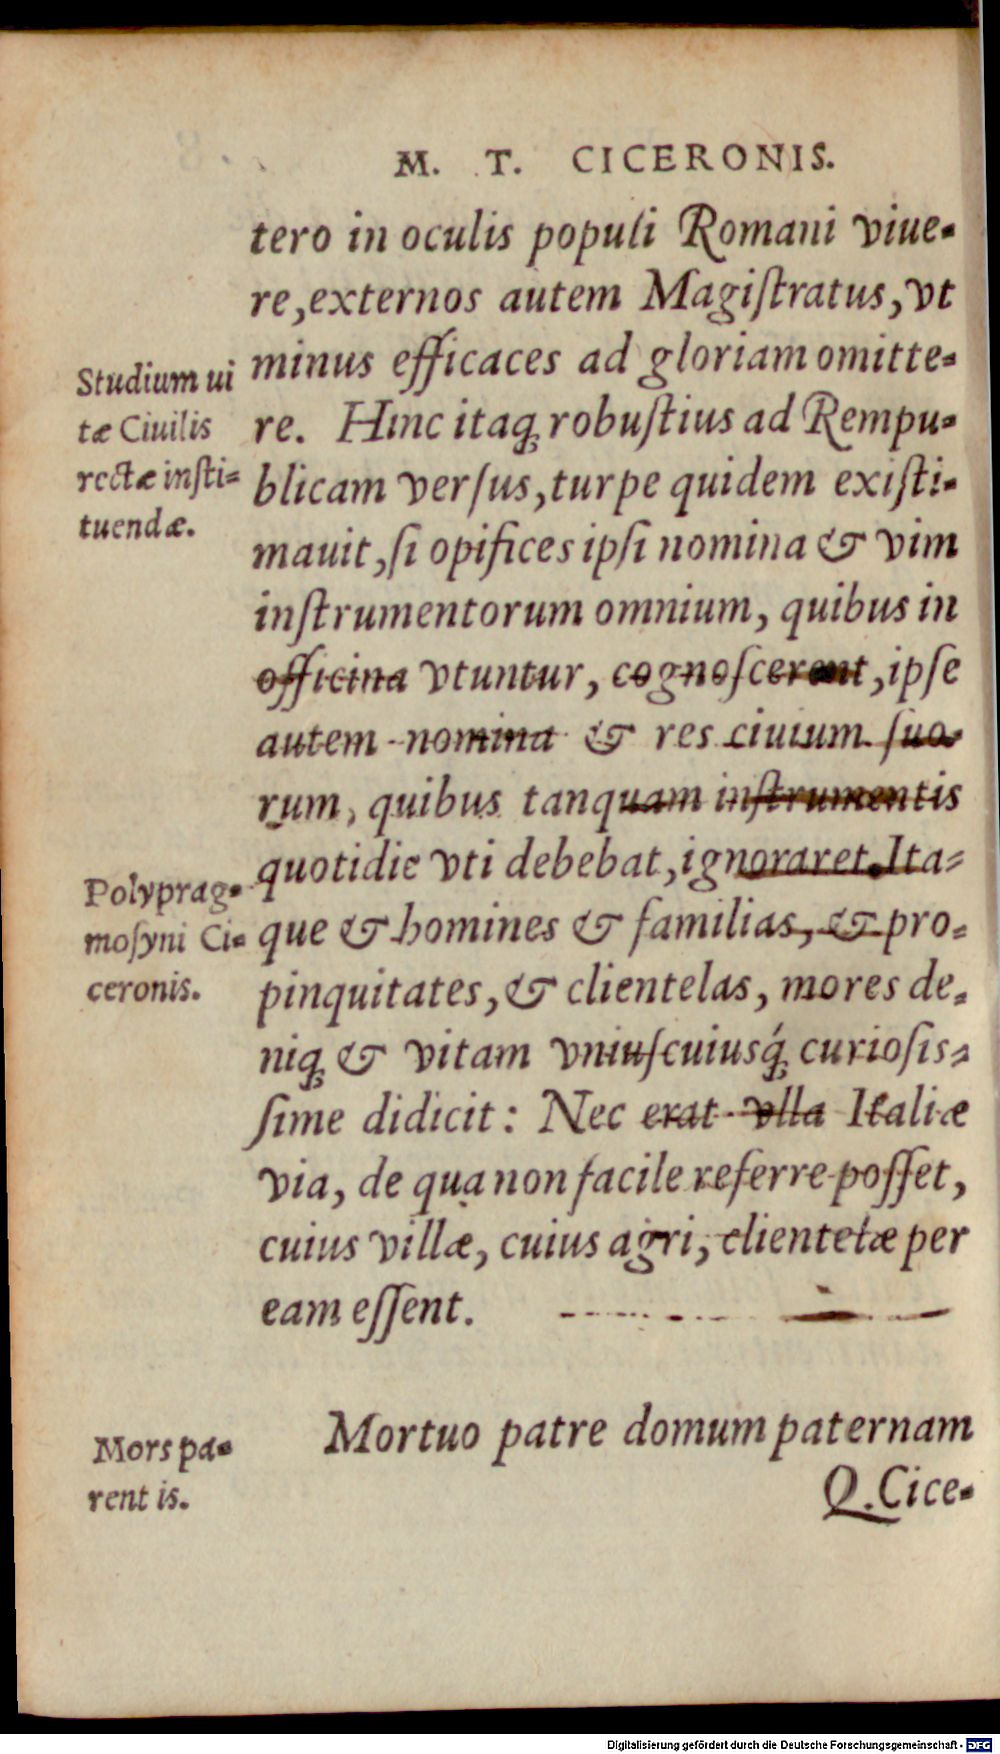 M. T. CICERONIS.
tero in oculis populi Romani viue-
re, externos autem Magiſtratus, vt
minus efficaces ad gloriam omitte-
re. Hinc itaq̃ robuſtius ad Rempu-
blicam verſus, turpe quidem exiſti-
mauit, ſi opifices ipſi nomina & vim
inſtrumentorum omnium, quibus in
officina vtuntur, cognoſcerent, ipſe
autem nomina & res ciuium ſuo-
rum, quibus tanquam inſtrumentis
quotidie vti debebat, ignoraret. Ita-
que & homines & familias, & pro-
pinquitates, & clientelas, mores de-
niq̃ & vitam vniuſcuiusq́ curioſis-
ſime didicit: Nec erat vlla Italiæ
via, de qua non facile referre poſſet,
cuius villæ, cuius agri, clientelæ per
eam eſſent.
Mortuo patre domum paternam
Q. Cice-
Studium ui
tæ Ciuilis
rectæ inſti-
tuendæ.
Polyprag-
moſyni Ci-
ceronis.
Mors pa-
rentis.
Digitalisierung gefördert durch die Deutsche Forschungsgemeinschaft - DFG